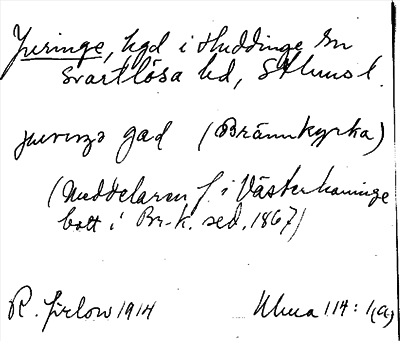 Juringe, hgd i Huddinge sn
Svartlösa hd, Sthms l.
jurıŋgə gad (Brännkyrka)
(Meddelaren f. i Västerhaninge
bott i Br-k. sed. 1867)
R. Jirlow 1914 Uhua 114:1(a)